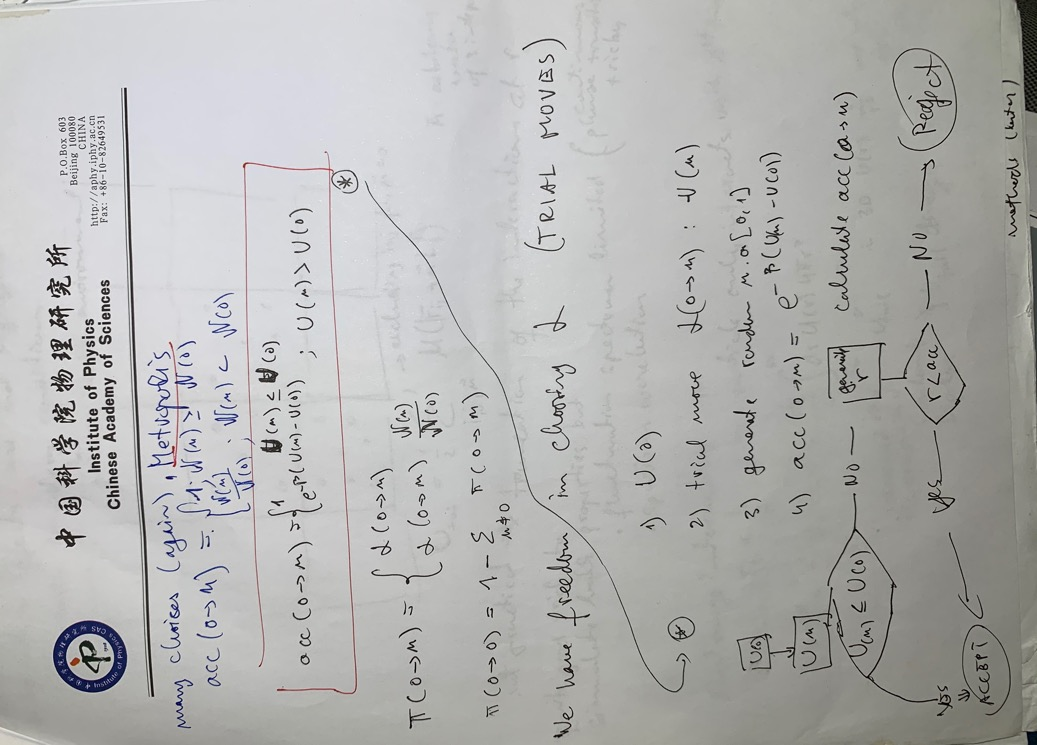 中国科学院物理研究所
Institute of Physics
Chinese Academy of Sciences
P.O.Box 603
Beijing 100080
CHINA
http://aphy.iphy.ac.cn
Fax: +86-10-82649531
many choices (again), Metropolis
acc (0→n) = { 1 , N(n) ≥ N(0)
N(n)/N(0) , N(n) < N(0)
acc (0→n) = { 1 U(n) ≤ U(0)
e^-β(U(n)-U(0)) ; U(n) > U(0)
(*)
π(0→n) = { α(0→n)
α(0→n) N(n)/N(0)
π(0→0) = 1 - Σ n≠0 π(0→n)
We have freedom in choosing α (TRIAL MOVES)
(*)
1) U(0)
2) trial move α(0→n) : U(n)
3) generate random n. α[0,1]
4) acc (0→n) = e^-β(U(n)-U(0))
U(0)
U(n)
U(n) ≤ U(0)
NO
generate r
calculate acc(0→n)
r<acc
NO
Reject
yes
YES
ACCEPT
methods (later)